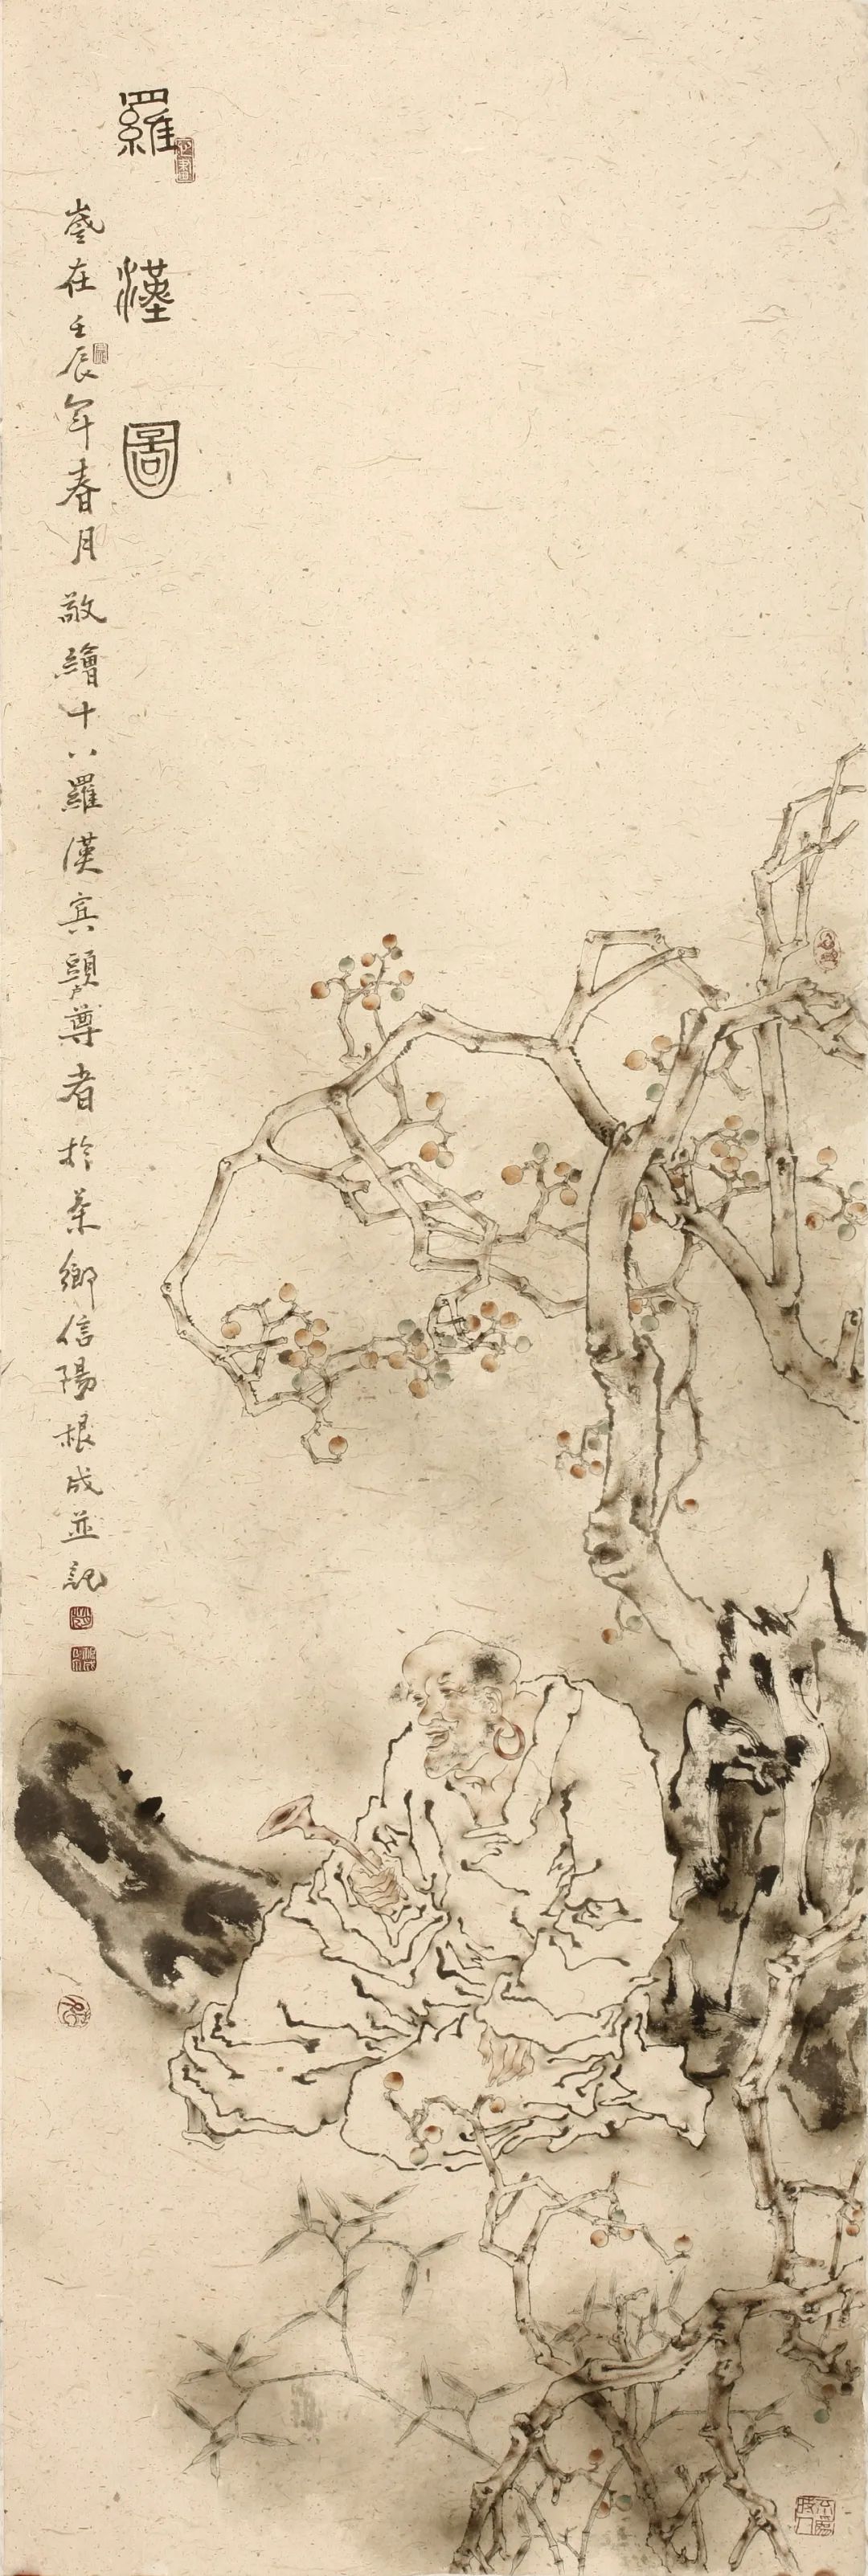 羅漢圖
歲在壬辰年春月敬繪十八羅漢賓頭盧尊者於茶鄉信陽根成並記